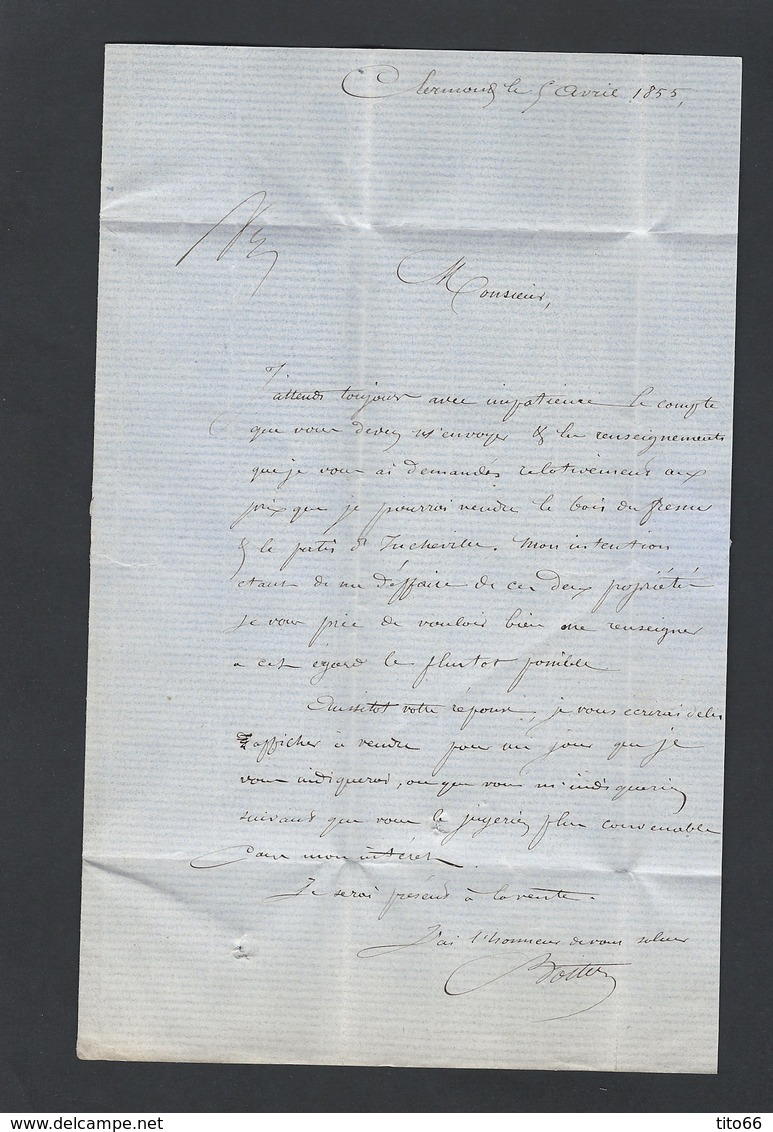 Clermont le 5 Avril 1855,
Monsieur,
J'attends toujours avec impatience le compte
que vous devez m'envoyer & les renseignements
que je vous ai demandés relativement aux
prix que je pourrai vendre le bois du fresne
& le patis d'Incheville. Mon intention
etant de me déffaire de ces deux proprieté
je vous prie de vouloir bien me renseigner
a cet égard le plustot possible
Aussitot votre réponse, je vous ecrirai de les
afficher à vendre pour un jour que je
vous indiquerai, ou que vous m'indiquerier
suivant que vous le jugeriez plus convenable
dans mon intéret.
Je serai présent à la vente.
J'ai l'honneur de vous saluer
delcampe.net
tito66